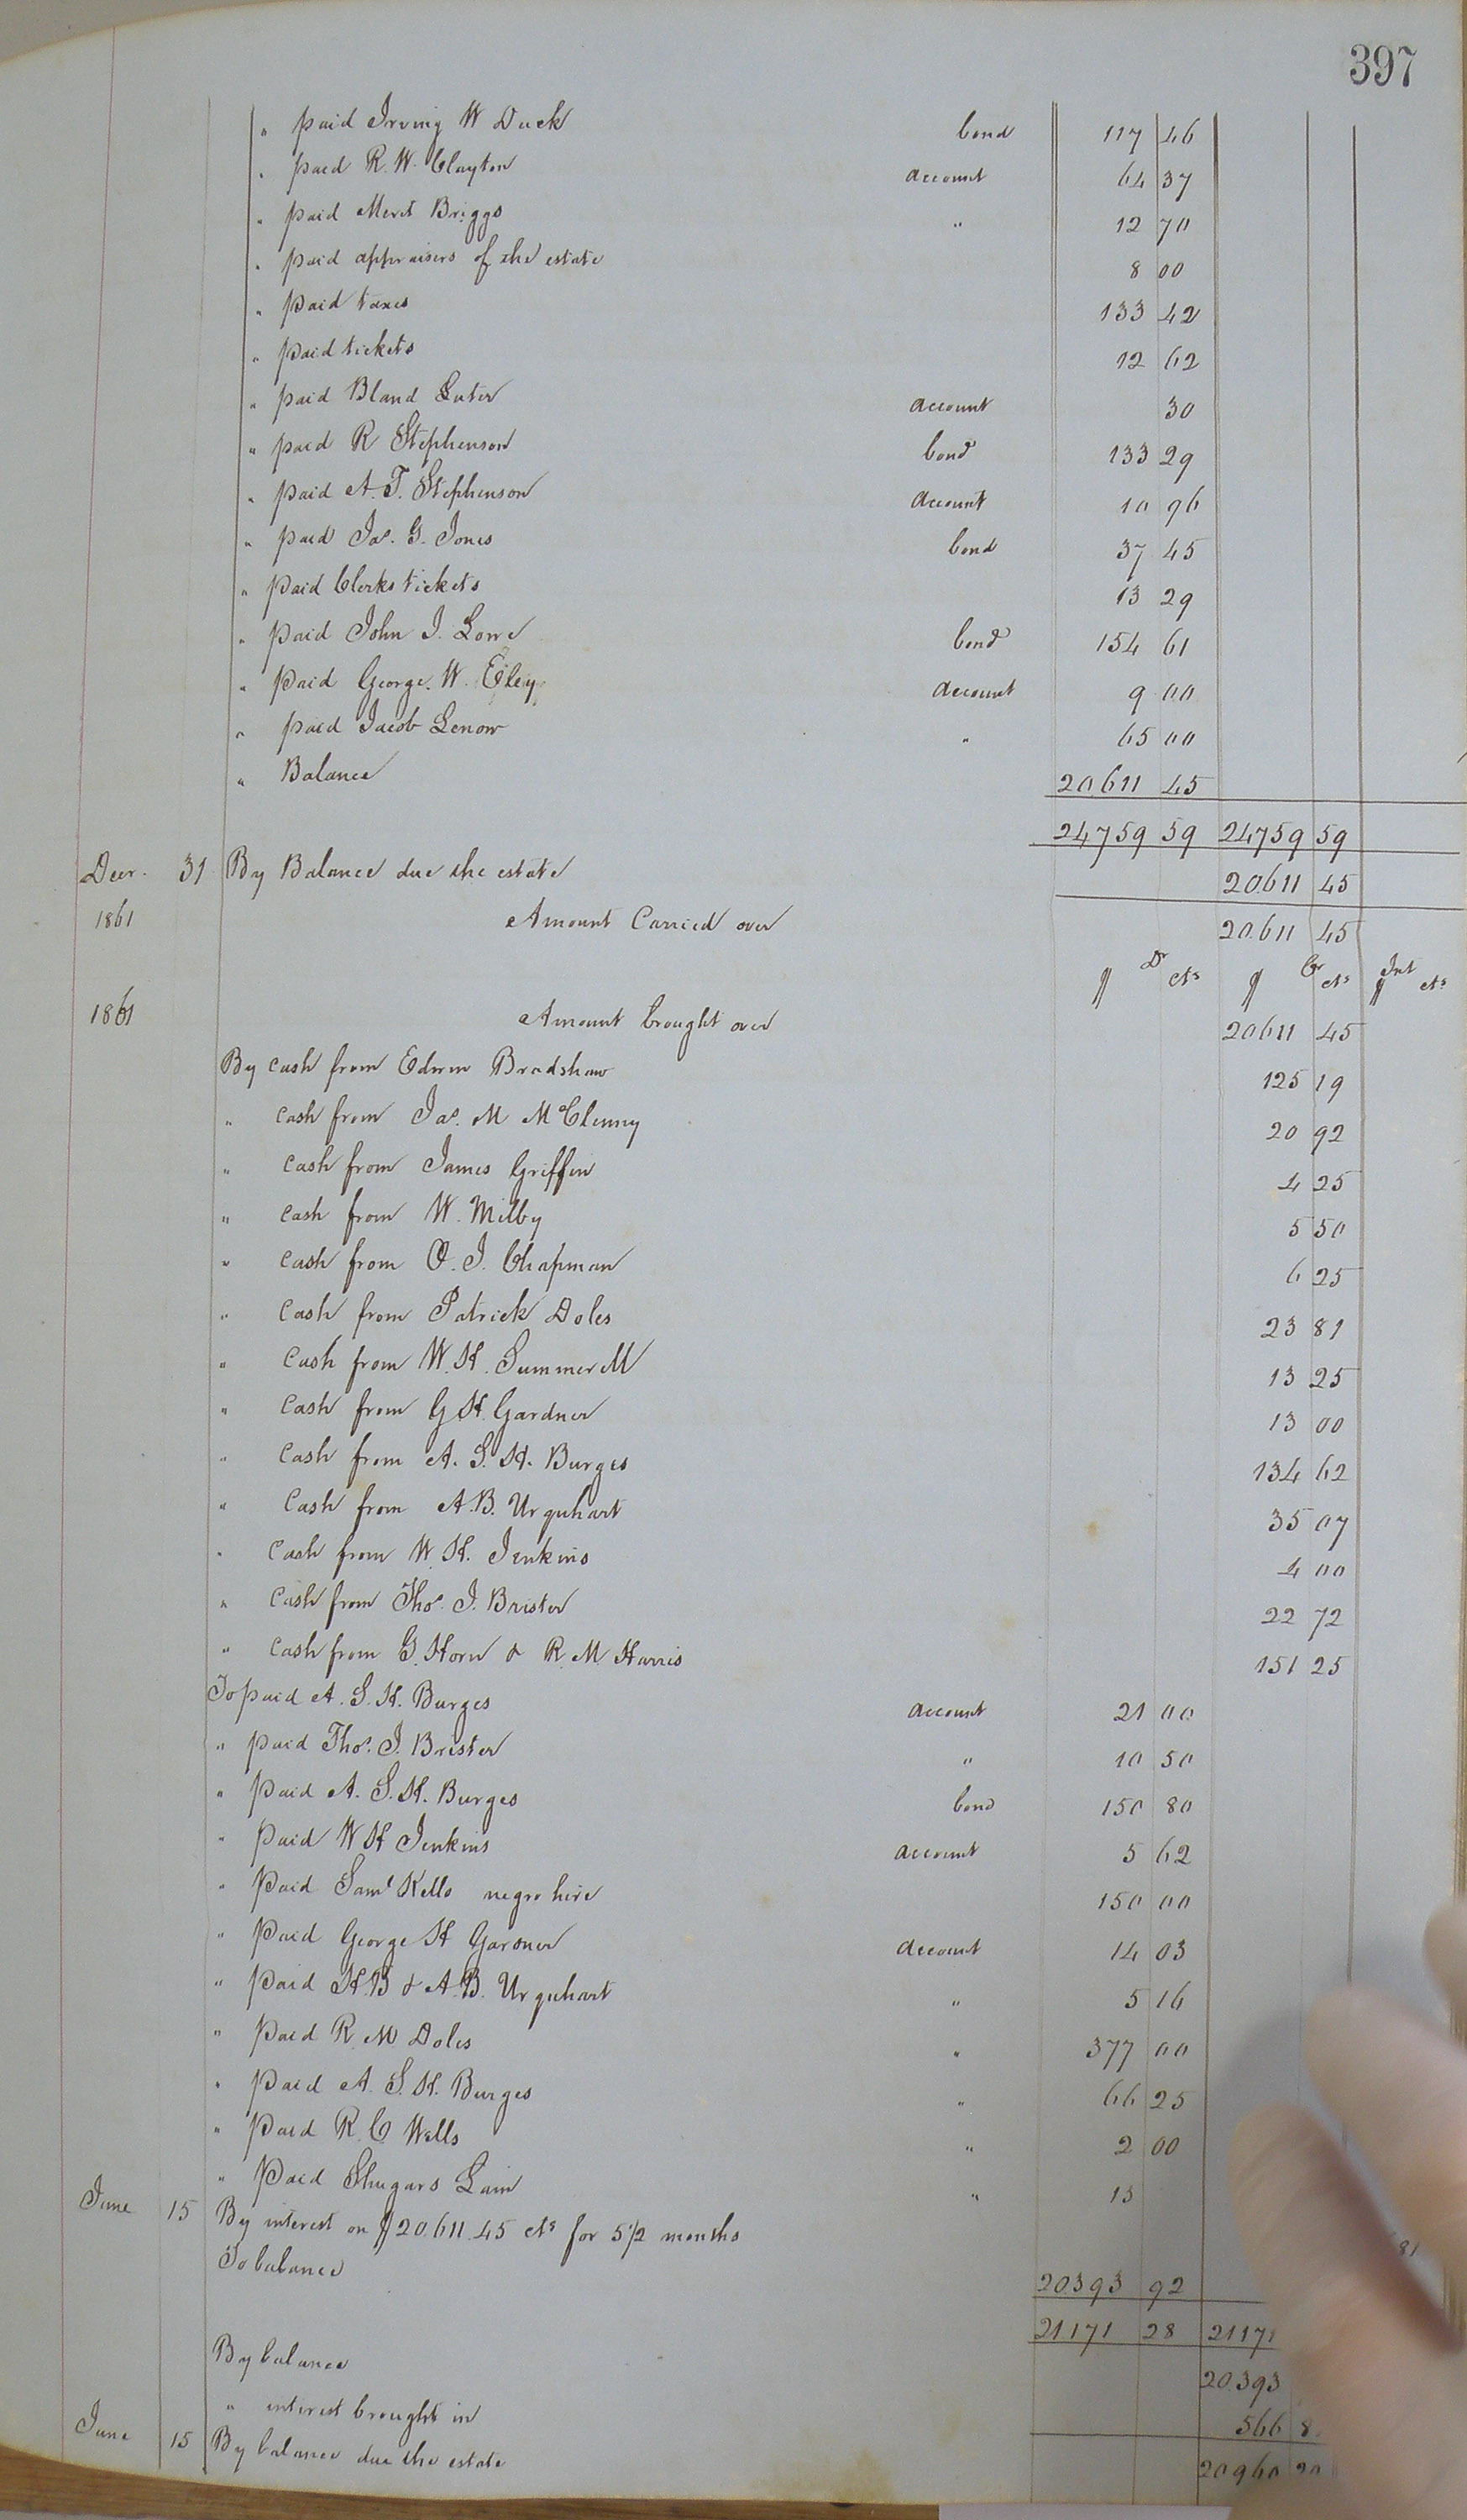 397
" paid Irving W Duck bond 117 46
" paid R. W. Clayton account 64 37
" paid Merit Briggs " 12 70
" paid appraisers of the estate 8 00
" paid taxes 133 42
" paid tickets 12 62
" paid Bland Luter account 30
" paid R Stephenson bond 133 29
" paid A. T. Stephenson account 10 96
" paid Jas. G. Jones bond 37 45
" paid Clerks tickets 13 29
" paid John J. Lowe bond 154 61
" paid George. W. Eley account 9 00
" paid Jacob Lenow " 65 00
" Balance 20611 45
24759 59 24759 59
Decr. 31 By Balance due the estate 20611 45
1861 Amount Carried over 20.611 45
$ Dr cts $ Cr cts Int $ cts
1861 Amount brought over 20611 45
By cash from Edwin Bradshaw 125 19
" cash from Jas. M McClenny 20 92
" cash from James Griffin 4 25
" cash from W. Milby 5 50
" cash from O. J. Chapman 6 25
" cash from Patrick Doles 23 81
" cash from W. H. Summerell 13 25
" cash from G H. Gardner 13 00
" cash from A. S. H. Burges 134 62
" cash from A. B. Urquhart 35 07
" cash from W. H. Jenkins 4 00
" cash from Thos. J. Brister 22 72
" cash from G. Horn & R. M. Harris 151 25
To paid A. S. H. Burges account 21 00
" paid Thos. J. Brister " 10 50
" paid A. S. H. Burges bond 150 80
" paid W H Jenkins account 5 62
" paid Saml Kello negro hire 150 00
" paid George H Gardner account 14 03
" paid H. B & A. B. Urquhart " 5 16
" paid R. M Doles " 377 00
" paid A. S. H. Burges " 66 25
" paid R. C Wells " 2 00
" paid Shugars Lain " 15
June 15 By interest on $20.611.45 cts for 5 1/2 months 81
To balance 20393 92
21171 28 2117
By balance 20.393
" interest brought in 566 8
June 15 By balance due the estate 20960 20